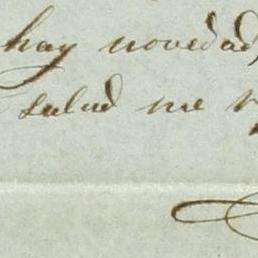 hay novedad,
salud me